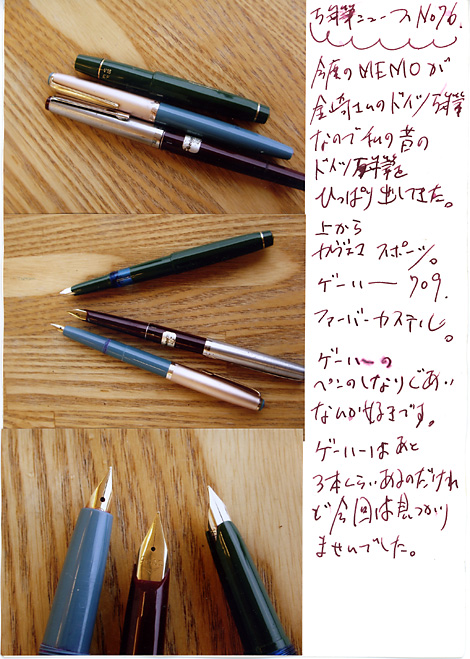 万年筆ニュース No76.
今度のMEMOが
金崎さんのドイツ万年筆
なので私の昔の
ドイツ万年筆を
ひっぱり出してきた。
上から
カヴェコ スポーツ。
ゲーハー 709.
ファーバーカステル。
ゲーハーの
ペンのしなりぐあい
なんか好きです。
ゲーハーはあと
3本くらいあるのだけれ
ど今回は見つかり
ませんでした。